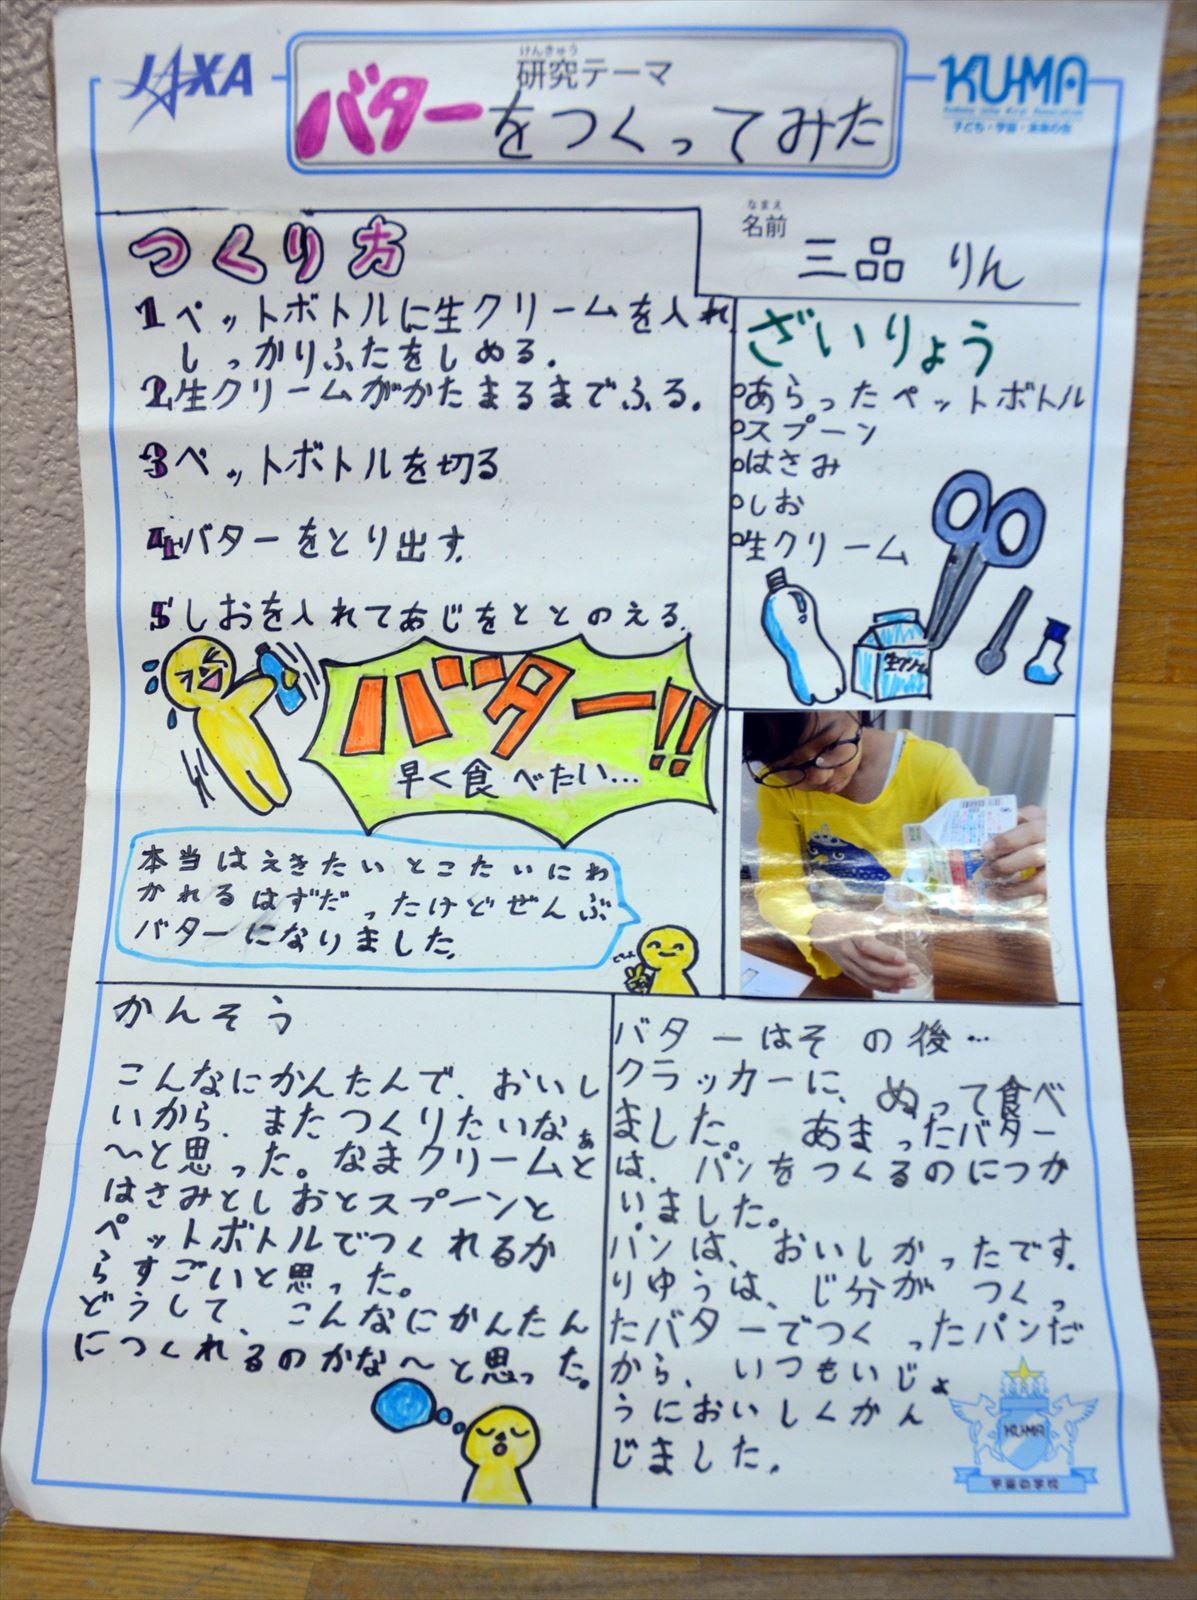 JAXA
けんきゅう
研究テーマ
バターをつくってみた
KUMA
子ども・宇宙・未来の会
なまえ
名前
三品 りん
つくり方
1 ペットボトルに生クリームを入れ
しっかりふたをしめる.
2 生クリームがかたまるまでふる.
3 ペットボトルを切る
4 バターをとり出す.
5 しおを入れてあじをととのえる.
バター!!
早く食べたい…
本当はえきたいとこたいにわ
かれるはずだったけどぜんぶ
バターになりました.
ざいりょう
○あらったペットボトル
○スプーン
○はさみ
○しお
○生クリーム
生クリーム
かんそう
こんなにかんたんで、おいし
いから、またつくりたいなぁ
〜と思った。なまクリームと
はさみとしおとスプーンと
ペットボトルでつくれるか
らすごいと思った。
どうして、こんなにかんたん
につくれるのかな〜と思った。
バターはその後…
クラッカーに、ぬって食べ
ました。あまったバター
は、パンをつくるのにつか
いました。
パンは、おいしかったです.
りゆうは、じ分が つくっ
たバターでつくったパンだ
から、いつもいじょ
うにおいしくかん
じました.
KUMA
宇宙の学校